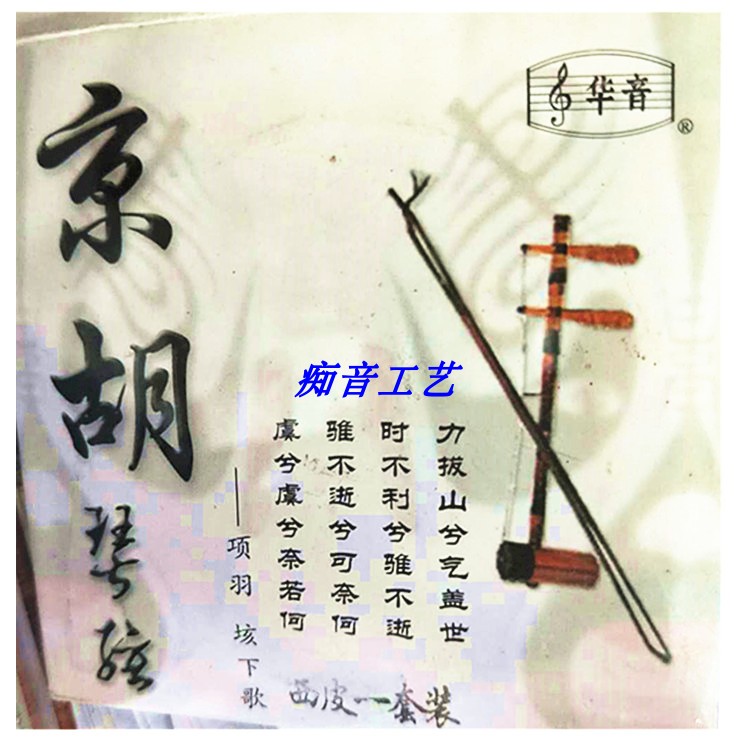 华音
®
京胡
琴弦
痴音工艺
力拔山兮气盖世
时不利兮骓不逝
骓不逝兮可奈何
虞兮虞兮奈若何
——项羽 垓下歌
西皮一套装